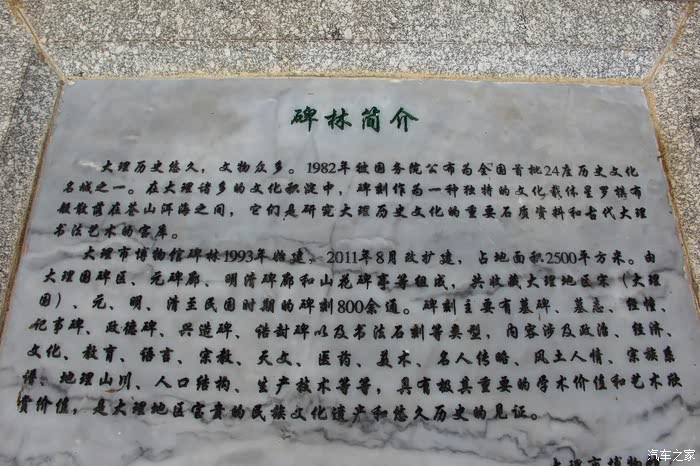 碑林简介
大理历史悠久，文物众多。1982年被国务院公布为全国首批24座历史文化
名城之一。在大理诸多的文化积淀中，碑刻作为一种独特的文化载体星罗棋布
般散落在苍山洱海之间，它们是研究大理历史文化的重要石质资料和古代大理
书法艺术的宝库。
大理市博物馆碑林1993年始建，2011年8月改扩建，占地面积2500平方米。由
大理国碑区、元碑廊、明清碑廊和山花碑亭等组成，共收藏大理地区宋（大理
国）、元、明、清至民国时期的碑刻800余通。碑刻主要有墓碑、墓志、经幢、
记事碑、政德碑、兴造碑、诰封碑以及书法石刻等类型，内容涉及政治、经济、
文化、教育、语言、宗教、天文、医药、美术、名人传略、风土人情、宗族系
谱、地理山川、人口结构、生产技术等等，具有极其重要的学术价值和艺术欣
赏价值，是大理地区宝贵的民族文化遗产和悠久历史的见证。
大理市博物
汽车之家